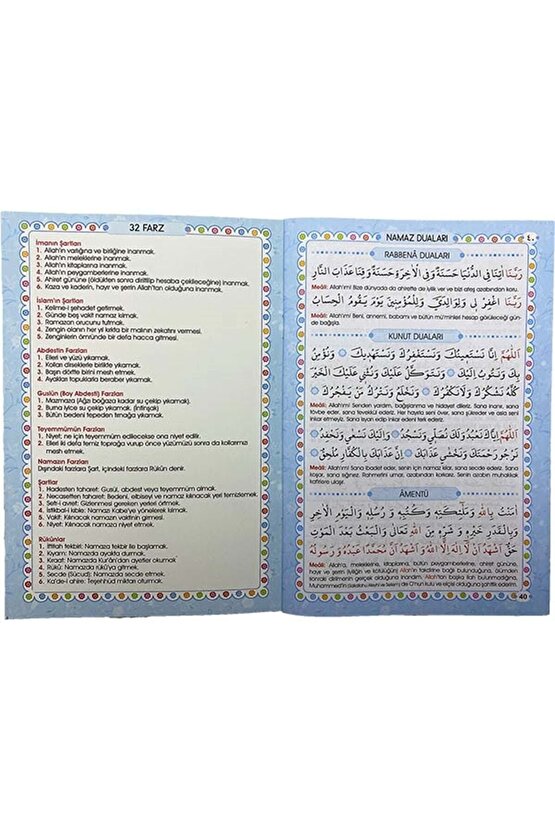 32 FARZ
İmanın Şartları
1. Allah'ın varlığına ve birliğine inanmak.
2. Allah'ın meleklerine inanmak.
3. Allah'ın kitaplarına inanmak.
4. Allah'ın peygamberlerine inanmak.
5. Ahiret gününe (öldükten sonra diriltilip hesaba çekileceğine) inanmak.
6. Kaza ve kaderin, hayır ve şerrin Allah'tan olduğuna inanmak.
İslam'ın Şartları
1. Kelime-i şehadet getirmek.
2. Günde beş vakit namaz kılmak.
3. Ramazan orucunu tutmak.
4. Zengin olanın her yıl kırkta bir malının zekatını vermesi.
5. Zenginlerin ömründe bir defa hacca gitmesi.
Abdestin Farzları
1. Elleri ve yüzü yıkamak.
2. Kolları dirseklerle birlikte yıkamak.
3. Başın dörtte birini mesh etmek.
4. Ayakları topuklarla beraber yıkamak.
Guslün (Boy Abdesti) Farzları
1. Mazmaza (Ağız boğazına kadar su çekip yıkamak).
2. Burna iyice su çekip yıkamak. (İntinşak)
3. Bütün bedeni tepeden tırnağa yıkamak.
Teyemmümün Farzları
1. Niyet; ne için teyemmüm edilecekse ona niyet edilir.
2. Elleri iki defa temiz toprağa vurup önce yüzümüzü sonra da kollarımızı
mesh etmek.
Namazın Farzları
Dışındaki farzlara Şart, içindeki farzlara Rükûn denir.
Şartlar
1. Hadesten taharet: Gusül, abdest veya teyemmüm almak.
2. Necasetten taharet: Bedeni, elbiseyi ve namaz kılınacak yeri temizlemek.
3. Setl-i avret: Gizlenmesi gereken yerleri örtmek.
4. İstikbal-i kıble: Namazı Kabe'ye yönelerek kılmak.
5. Vakit: Kılınacak namazın vaktinin girmesi.
6. Niyet: Kılınacak namaza niyet etmek.
Rükûnlar
1. İftitah tekbiri: Namaza tekbir ile başlamak.
2. Kıyam: Namazda ayakta durmak.
3. Kıraat: Namazda Kur'an'dan ayetler okumak
4. Rükû: Namazda rükû'ya gitmek.
5. Secde (Sücud): Namazda secde etmek.
6. Ka'de-i ahire: Teşehhüd miktarı oturmak.
NAMAZ DUALARI
٤٠
RABBENÂ DUALARI
رَبَّنَا اٰتِنَا فِى الدُّنْيَا حَسَنَةً وَفِى الْاٰخِرَةِ حَسَنَةً وَقِنَا عَذَابَ النَّارِ
Meâli: Allah'ım! Bize dünyada da ahirette de iyilik ver ve bizi ateş azabından koru.
رَبَّنَا اغْفِرْ لِى وَلِوَالِدَىَّ وَلِلْمُؤْمِنِينَ يَوْمَ يَقُومُ الْحِسَابُ
Meâli: Allah'ım! Beni, annemi, babamı ve bütün mü'minleri hesap görüleceği gün
de bağışla.
KUNUT DUALARI
اَللّٰهُمَّ اِنَّا نَسْتَعِينُكَ وَنَسْتَغْفِرُكَ وَنَسْتَهْدِيكَ وَنُؤْمِنُ
بِكَ وَنَتُوبُ اِلَيْكَ وَنَتَوَكَّلُ عَلَيْكَ وَنُثْنِى عَلَيْكَ الْخَيْرَ
كُلَّهُ نَشْكُرُكَ وَلَا نَكْفُرُكَ وَنَخْلَعُ وَنَتْرُكُ مَنْ يَفْجُرُكَ
Meâli: Allah'ım! Senden yardım, bağışlanma ve hidayet dileriz. Sana inanır, sana
tövbe eder, sana tevekkül ederiz. Her hayırla seni över, sana şükreder ve asla seni
inkar etmeyiz. Sana isyan edip inkar edeni terk ederiz.
اَللّٰهُمَّ اِيَّاكَ نَعْبُدُ وَلَكَ نُصَلِّى وَنَسْجُدُ وَاِلَيْكَ نَسْعٰى وَنَحْفِدُ
نَرْجُو رَحْمَتَكَ وَنَخْشٰى عَذَابَكَ اِنَّ عَذَابَكَ بِالْكُفَّارِ مُلْحِقٌ
Meâli: Allah'ım! Sana ibadet eder, senin için namaz kılar, sana secde ederiz. Sana
koşar, sana sığınırız. Rahmetini umar, azabından korkarız. Senin azabın muhakkak
kafirlere ulaşır.
ÂMENTÜ
اٰمَنْتُ بِاللّٰهِ وَمَلٰٓئِكَتِهِ وَكُتُبِهِ وَرُسُلِهِ وَالْيَوْمِ الْاٰخِرِ
وَبِالْقَدَرِ خَيْرِهِ وَشَرِّهِ مِنَ اللّٰهِ تَعَالٰى وَالْبَعْثُ بَعْدَ الْمَوْتِ
حَقٌّ اَشْهَدُ اَنْ لَا اِلٰهَ اِلَّا اللّٰهُ وَاَشْهَدُ اَنَّ مُحَمَّدًا عَبْدُهُ وَرَسُولُهُ
Meâli: Allah'a, meleklerine, kitaplarına, bütün peygamberlerine, ahiret gününe,
hayır ve şerrin (iyiliğin ve kötülüğün) Allah'ın takdirine bağlı bulunduğuna, öldükten
sonraki dirilmenin gerçek olduğuna inandım. Allah'tan başka ilah bulunmadığına,
Muhammed'in (Sallallâhu Aleyhi ve Sellem) de O'nun kulu ve elçisi olduğuna şahitlik ederim.
40